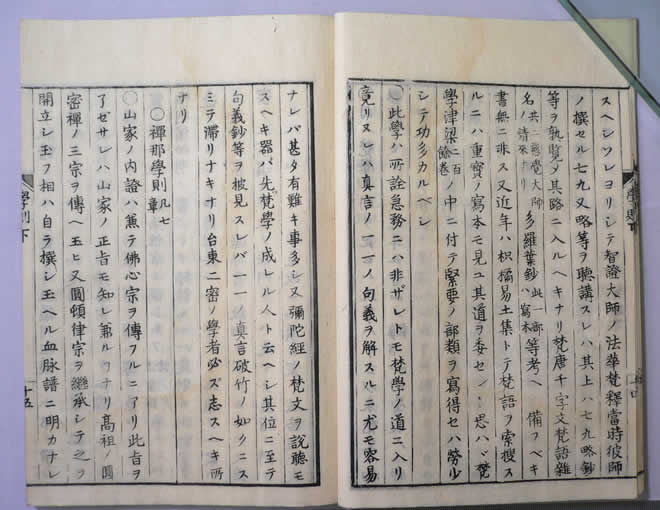 スヘシソレヨリシテ智證大師ノ法華梵釋當時彼師
ノ撰セル七九又略等ヲ聽講スレハ其上ハ七九略鈔
等ヲ孰覽メ其路ニ入ルヘキナリ梵唐千字文梵語雜
名共ニ慈覺大師ノ請來ナリ多羅葉鈔此一部ハ寫本等考ヘ備フベキ
書無ニ非ス又近年ハ枳橘易土集トテ梵語ヲ索搜ス
ルニハ重寶ノ寫本モ見ユ其道ヲ委セント思ハヾ梵
學津梁二百餘卷ノ中ニ付テ緊要ノ部類ヲ寫得セハ勞少
シテ功多カルベシ
〇此學ハ所詮急務ニハ非ザレトモ梵學ノ道ニ入リ
竟リヌレハ真言ノ一一ノ句義ヲ解スルニ尤モ容易
ナレバ甚タ有難キ事多シ又彌陀經ノ梵文ヲ說聽モ
スヘキ器バ先梵學ノ成レル人ト云ヘシ其位ニ至テ
句義鈔等ヲ披見スレバ一一ノ真言破竹ノ如クニス
ミテ滯リナキナリ台東二密ノ學者必ズ志スヘキ所
ナリ
〇禪那學則凡七章
〇山家ノ内證ハ兼テ佛心宗ヲ傳フルニアリ此旨ヲ
了ゼサレハ山家ノ正旨モ知レ兼ルヿナリ高祖ノ圓
密禪ノ三宗ヲ傳ヘ玉ヒ又圓頓律宗ヲ繼承シテ之ヲ
開立シ玉フ相ハ自ラ撰シ玉ヘル血脉譜ニ明カナレ
學則下
十五